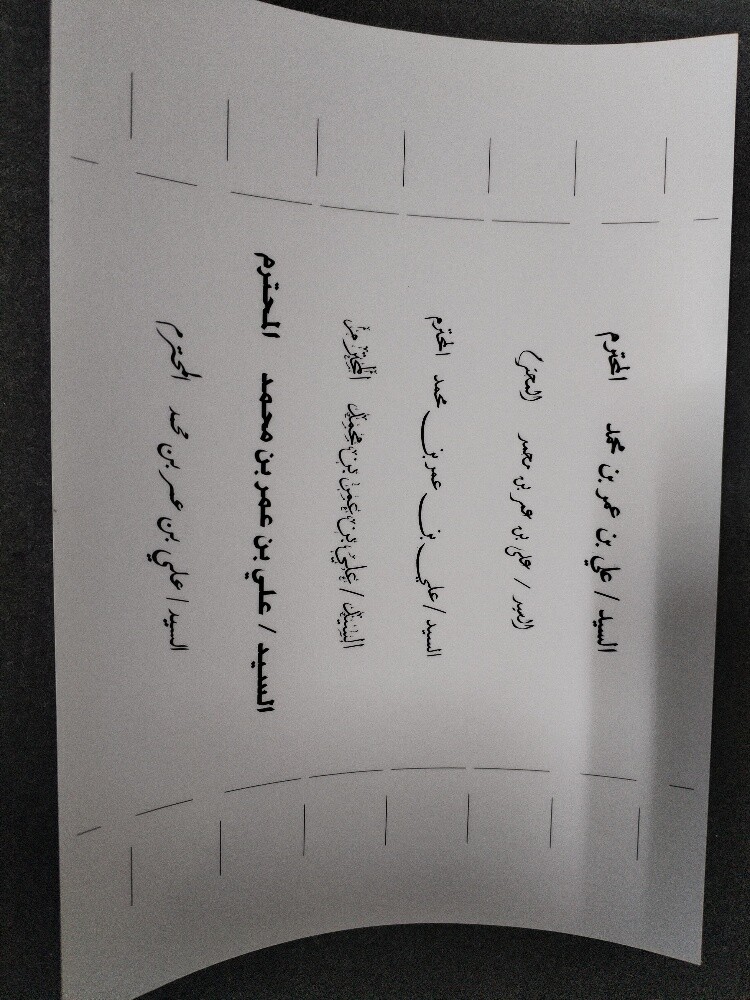 السيد / علي بن عمر بن محمد المحترم
السيد / علي بن عمر بن محمد (المحترم)
السيد / علي بن عمر بن محمد المحترم
السيد / علي بن عمر بن محمد المحترم
السيد / علي بن عمر بن محمد المحترم
السيد / علي بن عمر بن محمد المحترم